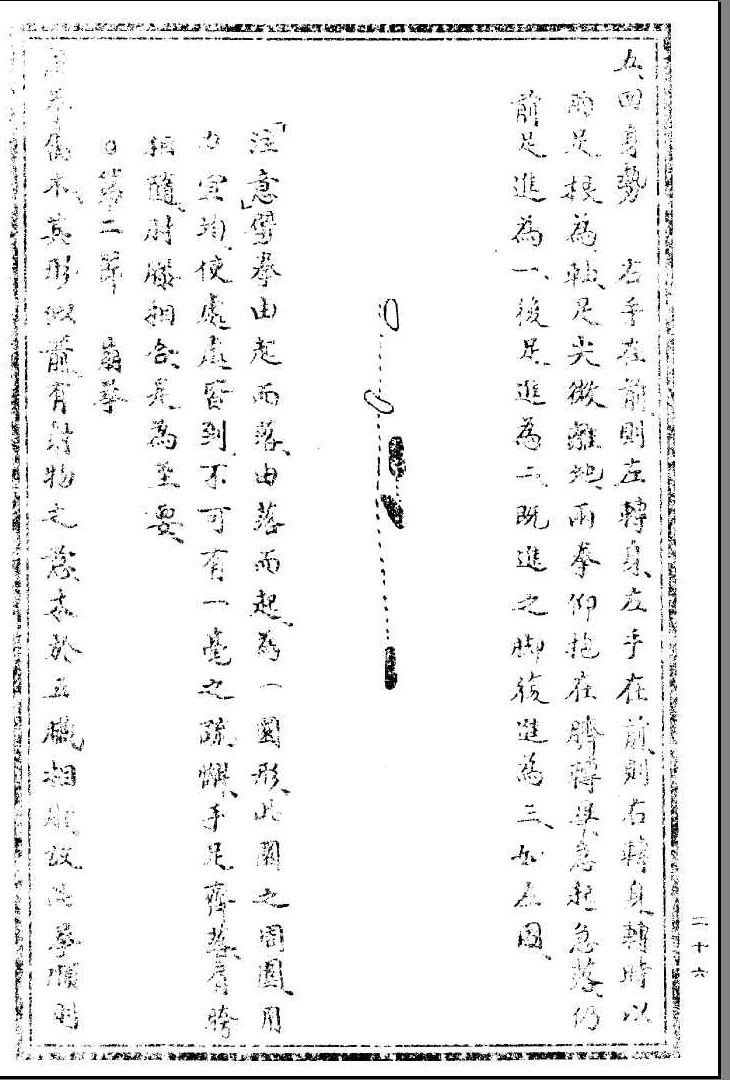 五、回身勢　右手在前則左轉身、左手在前則右轉身、轉時以
兩足根為軸、足尖微離地、兩拳仰抱在臍、轉畢急起急落、仍
前足進為一、後足進為二、既進之脚復進為三、如左圖、
「注意」劈拳由起而落、由落而起、為一圓形、此圓之周圍、用
力宜均、使處處密到、不可有一毫之疏懈、手足齊落、肩胯
相隨、肘膝相合、是為至要、
第二節　崩拳
拳屬木、其形似箭、有射物之意、在於五臟相肝、故此拳順則
二十六